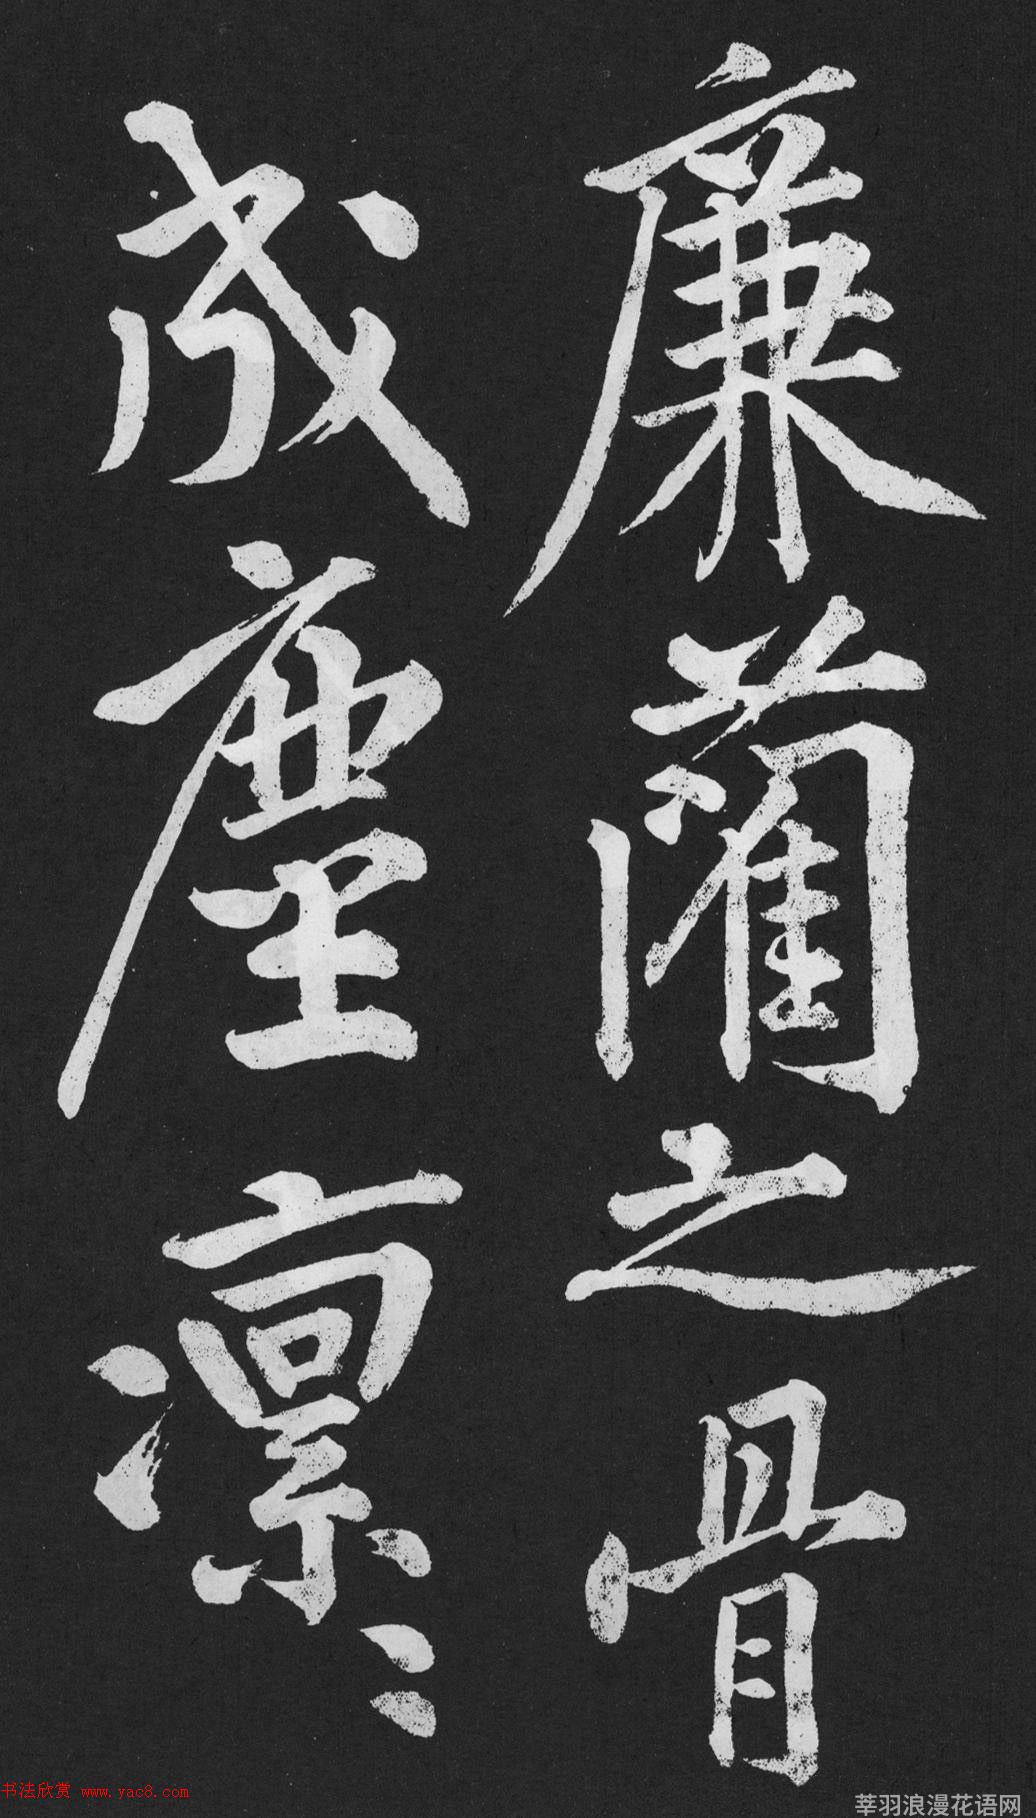 廉藺之骨
成塵凜〻
书法欣赏 www.yac8.com
莘羽浪漫花语网